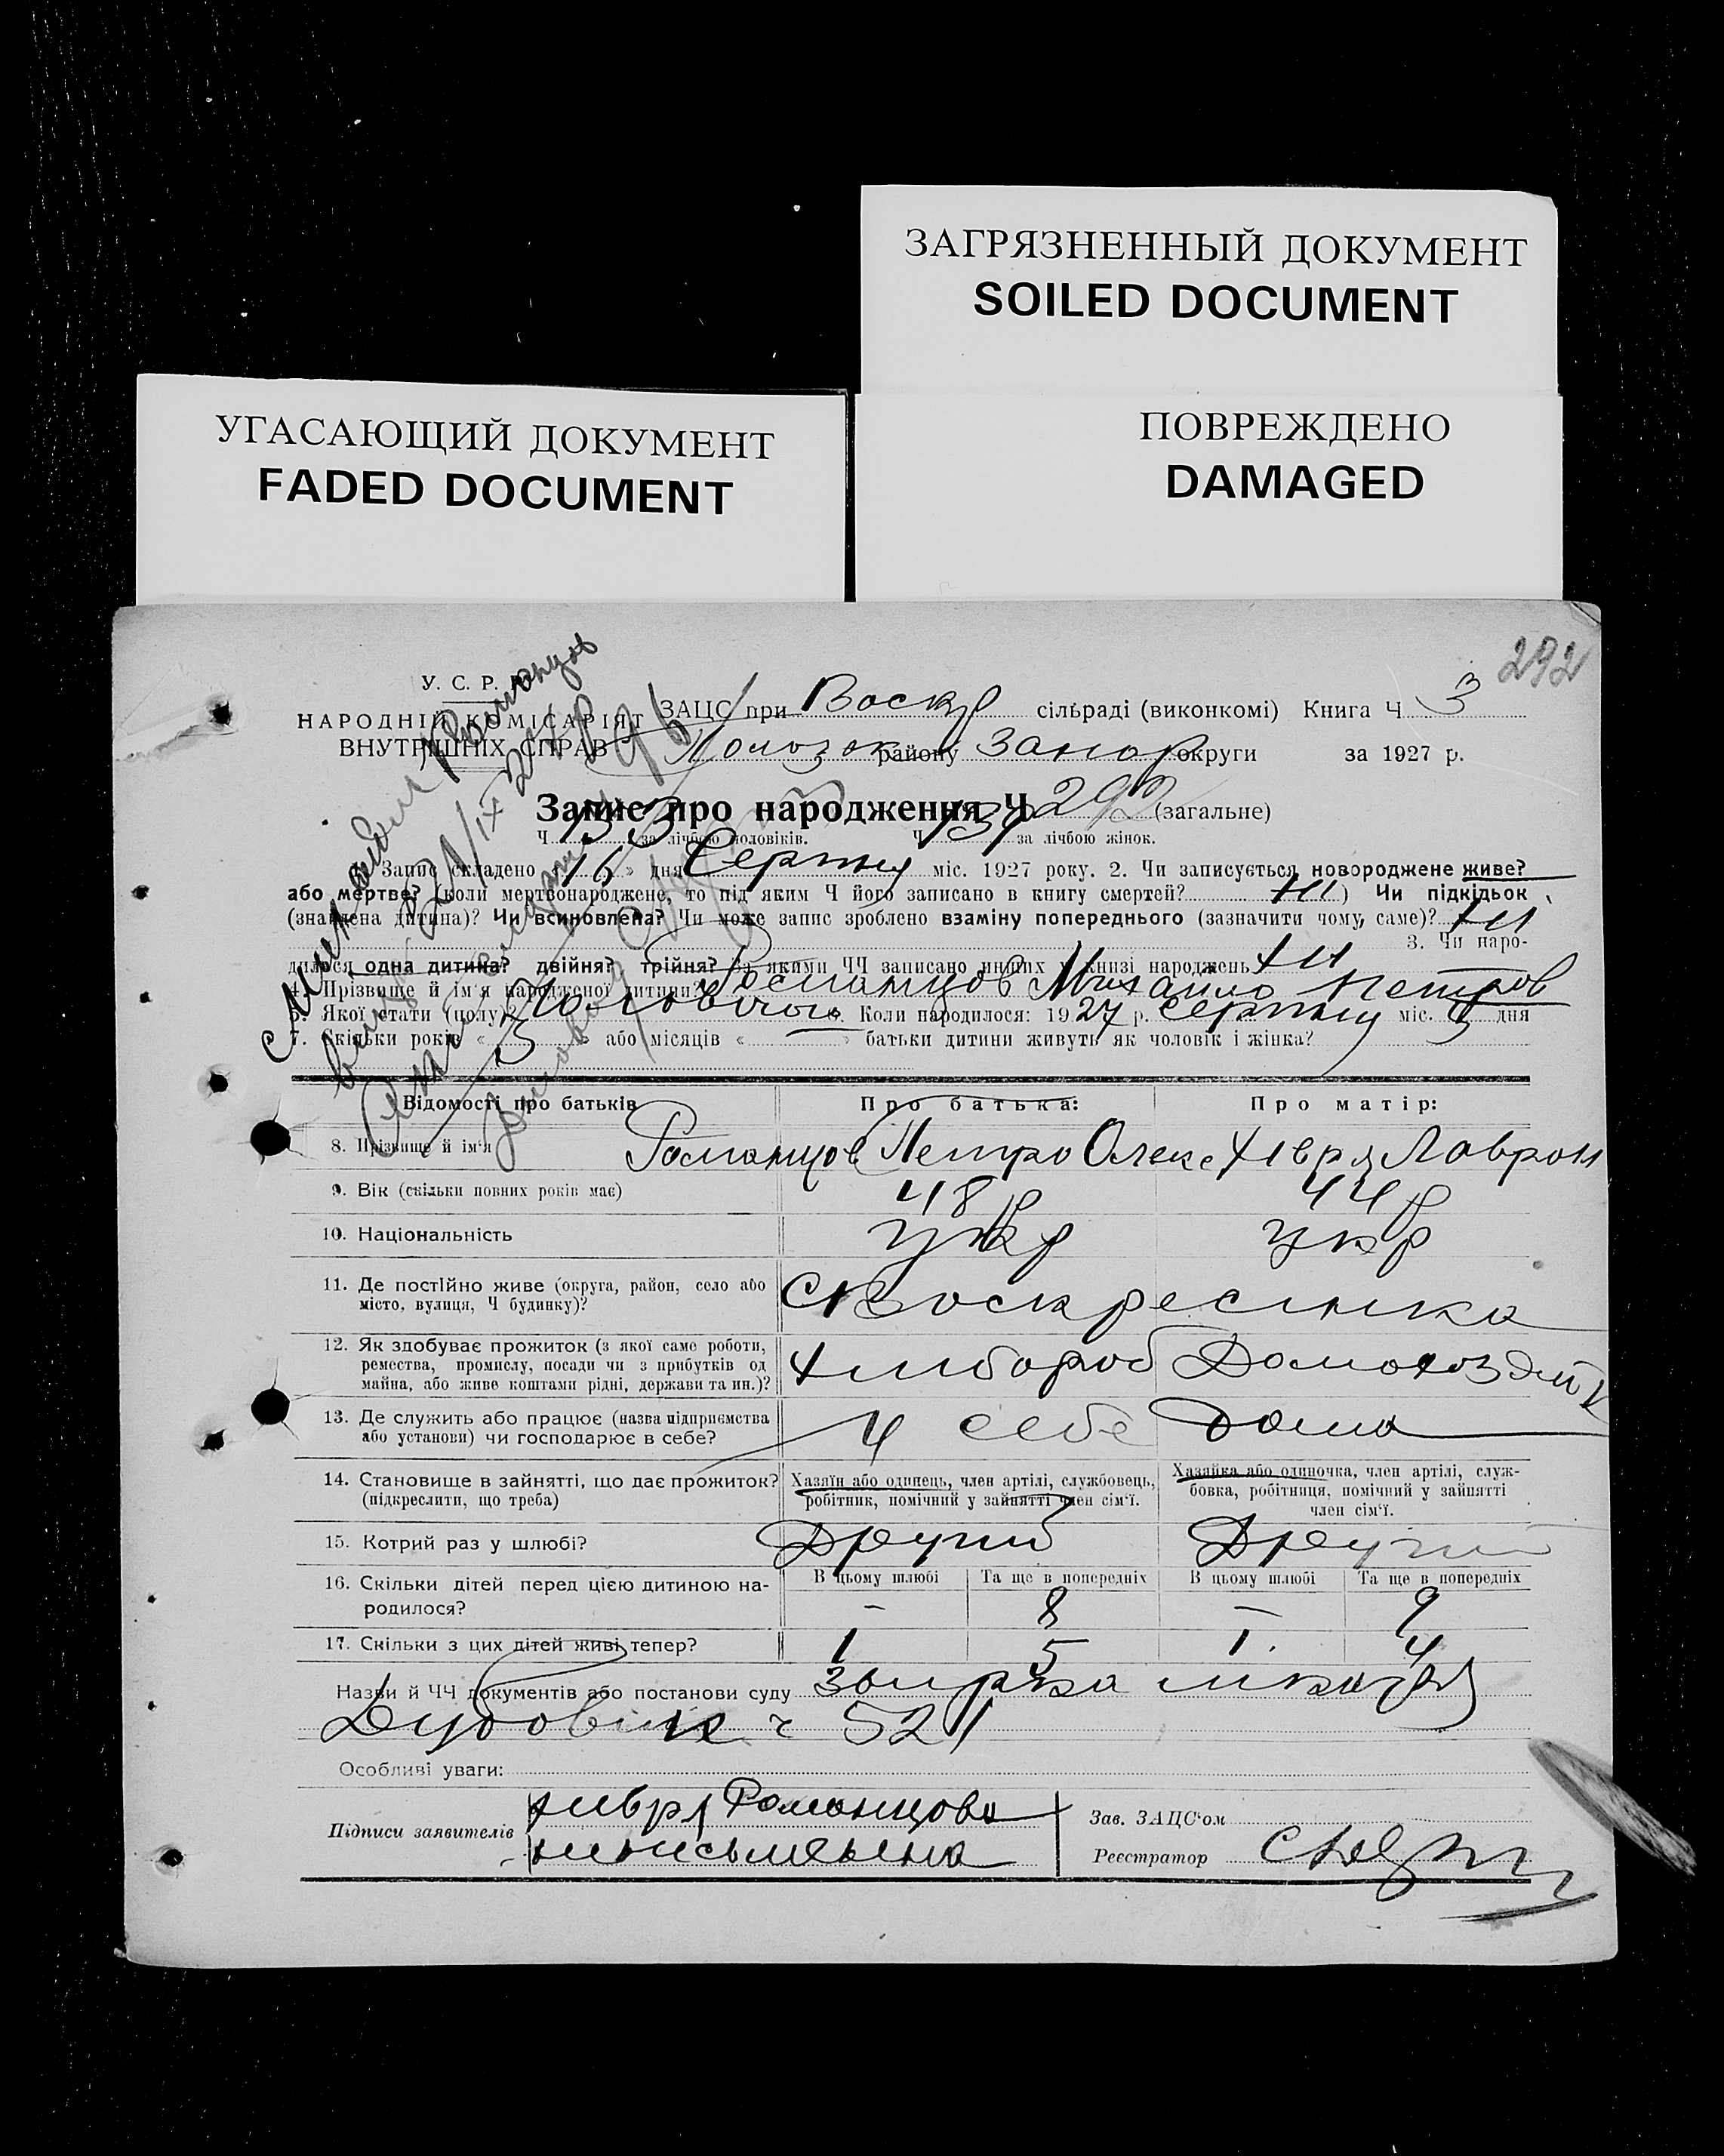 ЗАГРЯЗНЕННЫЙ ДОКУМЕНТ
SOILED DOCUMENT
УГАСАЮЩИЙ ДОКУМЕНТ
FADED DOCUMENT
ПОВРЕЖДЕНО
DAMAGED
292
У. С. Р. Р.
НАРОДНІЙ КОМІСАРІЯТ
ВНУТРІШНІХ СПРАВ
ЗАЦС при Воскр сільраді (виконкомі) Книга Ч 3
району Запор округи за 1927 р.
Запис про народження Ч 292 (загальне)
Ч 153 за лічбою чоловіків. Ч 139 за лічбою жінок.
Запис складено «16» дня Серпня міс. 1927 року. 2. Чи записується новороджене живе?
або мертве? (коли мертвонароджене, то під яким Ч його записано в книгу смертей? ні) Чи підкідьок
(знайдена дитина)? Чи всиновлена? Чи може запис зроблено взаміну попереднього (зазначити чому, саме)? ні
3. Чи наро-
дилося одна дитина? двійня? трійня? За якими ЧЧ записано инших у книзі народжень ні
4. Прізвище й ім'я народженої дитини? Романцов Михайло Петров
5. Якої стати (полу)? Чоловічої 6. Коли народилося: 1927 р. Серпня міс. 5 дня
7. Скільки років « » або місяців « » батьки дитини живуть як чоловік і жінка?
Відомості про батьків
Про батька:
Про матір:
8. Прізвище й ім'я Романцов Петро Олекс Хівря Лаврон
9. Вік (скільки повних років має) 48 р 44 р
10. Національність укр укр
11. Де постійно живе (округа, район, село або
місто, вулиця, Ч будинку)? с Воскресінка
12. Як здобуває прожиток (з якої саме роботи,
ремества, промислу, посади чи з прибутків од
майна, або живе коштами рідні, держави та ин.)? хлібороб
13. Де служить або працює (назва підприємства
або установи) чи господарює в себе? У себе дома
14. Становище в зайнятті, що дає прожиток?
(підкреслити, що треба)
Хазяїн або одинець, член артілі, службовець,
робітник, помічний у зайнятті член сім'ї.
Хазяйка або одиночка, член артілі, служ-
бовка, робітниця, помічний у зайнятті
член сім'ї.
15. Котрий раз у шлюбі? Другий Другий
16. Скільки дітей перед цією дитиною на-
родилося?
В цьому шлюбі Та ще в попередніх В цьому шлюбі Та ще в попередніх
– 8 – 9
17. Скільки з цих дітей живі тепер? 1 5 1. 4
Назви й ЧЧ документів або постанови суду
ч 521
Особливі уваги:
Підписи заявителів
Хівря Романцова
неписьменна
Зав. ЗАЦС'ом
Реєстратор